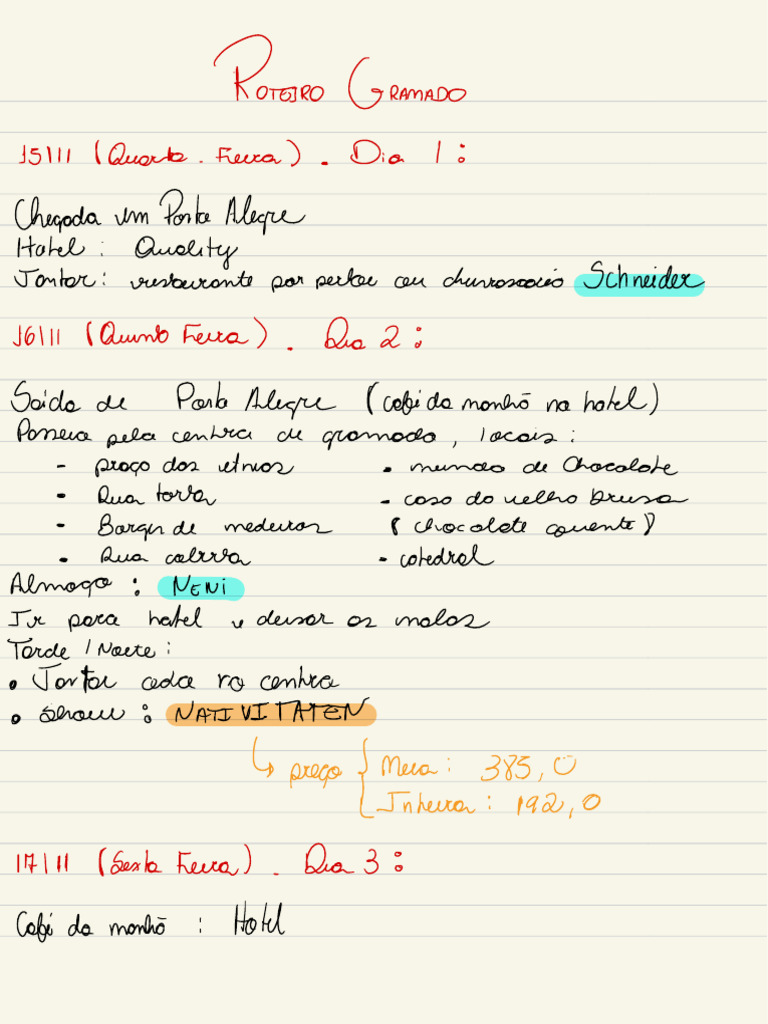 ROTEIRO GRAMADO
15/11 (Quarta-Feira). Dia 1:
Chegada em Porto Alegre
Hotel: Quality
Jantar: restaurante por perto ou churrascaria Schneider
16/11 (Quinta Feira). Dia 2:
Saída de Porto Alegre (café da manhã no hotel)
Passeio pelo centro de gramado, locais:
- praça das etnias
- Rua torta
- Borges de medeiros
- Rua coberta
- mundo de Chocolate
- casa do velho bruxo
(chocolate quente)
- catedral
Almoço: NENI
Ir para hotel e deixar as malas
Tarde/Noite:
• Jantar cedo no centro
• Show: NATIVITATEN
↳ preço { Meia: 385,0
Inteira: 192,0
17/11 (Sexta Feira). Dia 3:
Café da manhã: Hotel